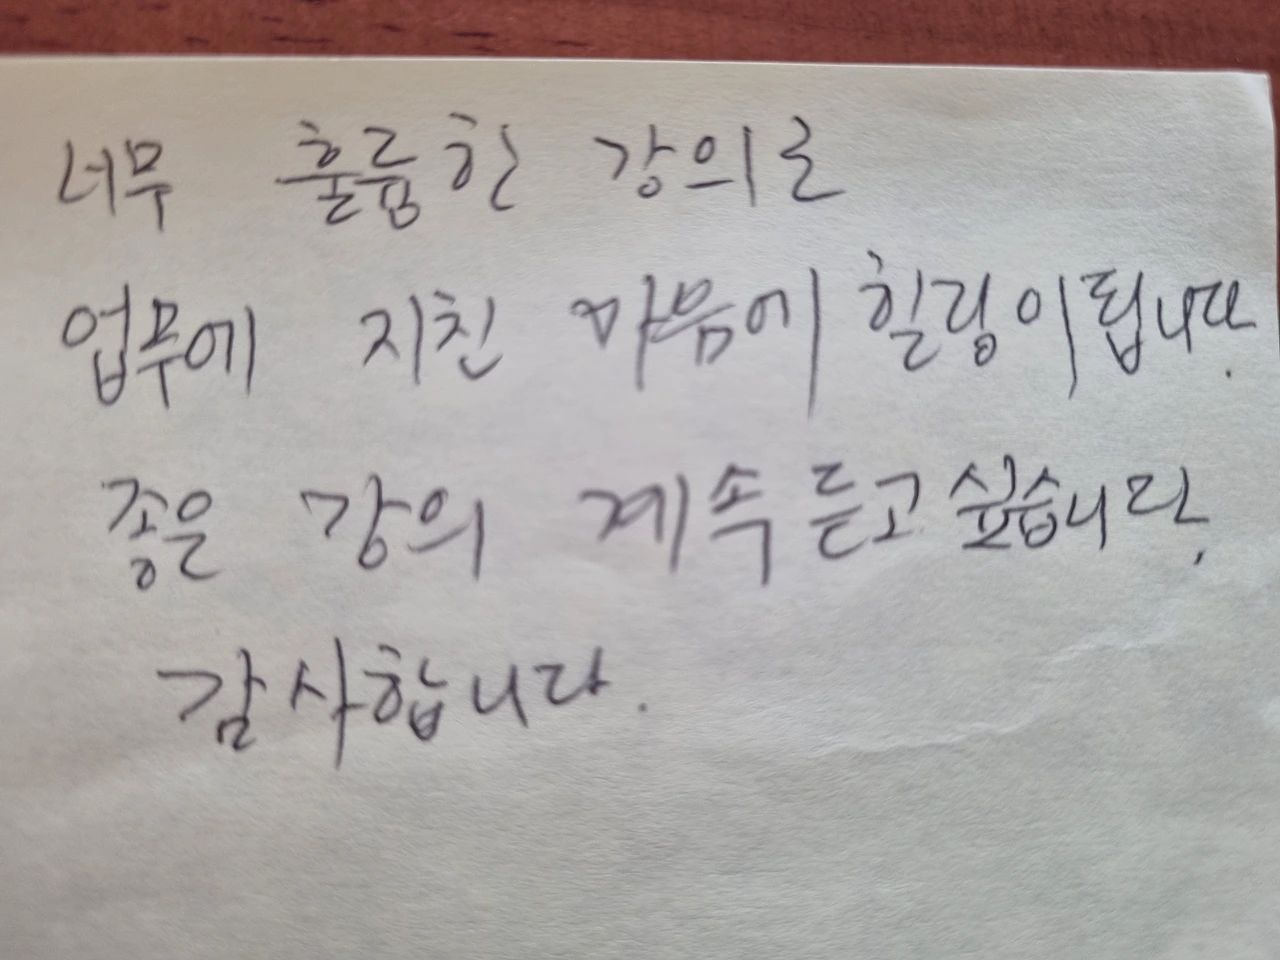 너무 훌륭한 강의로
업무에 지친 마음에 힐링이됩니다.
좋은 강의 계속 듣고싶습니다.
감사합니다.